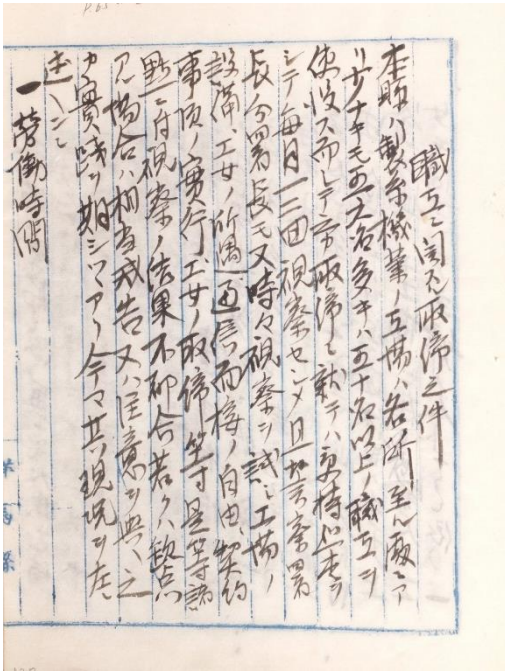 職工ニ関スル取締之件
本縣ハ製糸機業ノ工場ハ各所至ル處ニア
リ少ナキモ五六名多キハ五十名以上ノ職工ヲ
使役ス而シテ之カ取締ニ就テハ受持巡査ヲ
シテ毎月一二回視察セシメ且ツ警察署
長分署長モ又時々視察シ試ニ工場ノ
設備、工女ノ所遇、通信面接ノ自由契約
事項ノ實行、工女ノ取締等寸是等諸
點ニ付視察ノ結果不都合若クハ欠点
アル場合ハ相当戒告又ハ注意ヲ與ヘ之
カ實踐ヲ期シツヽアリ今マ其現況ヲ左ニ
一 労働時間
群馬縣